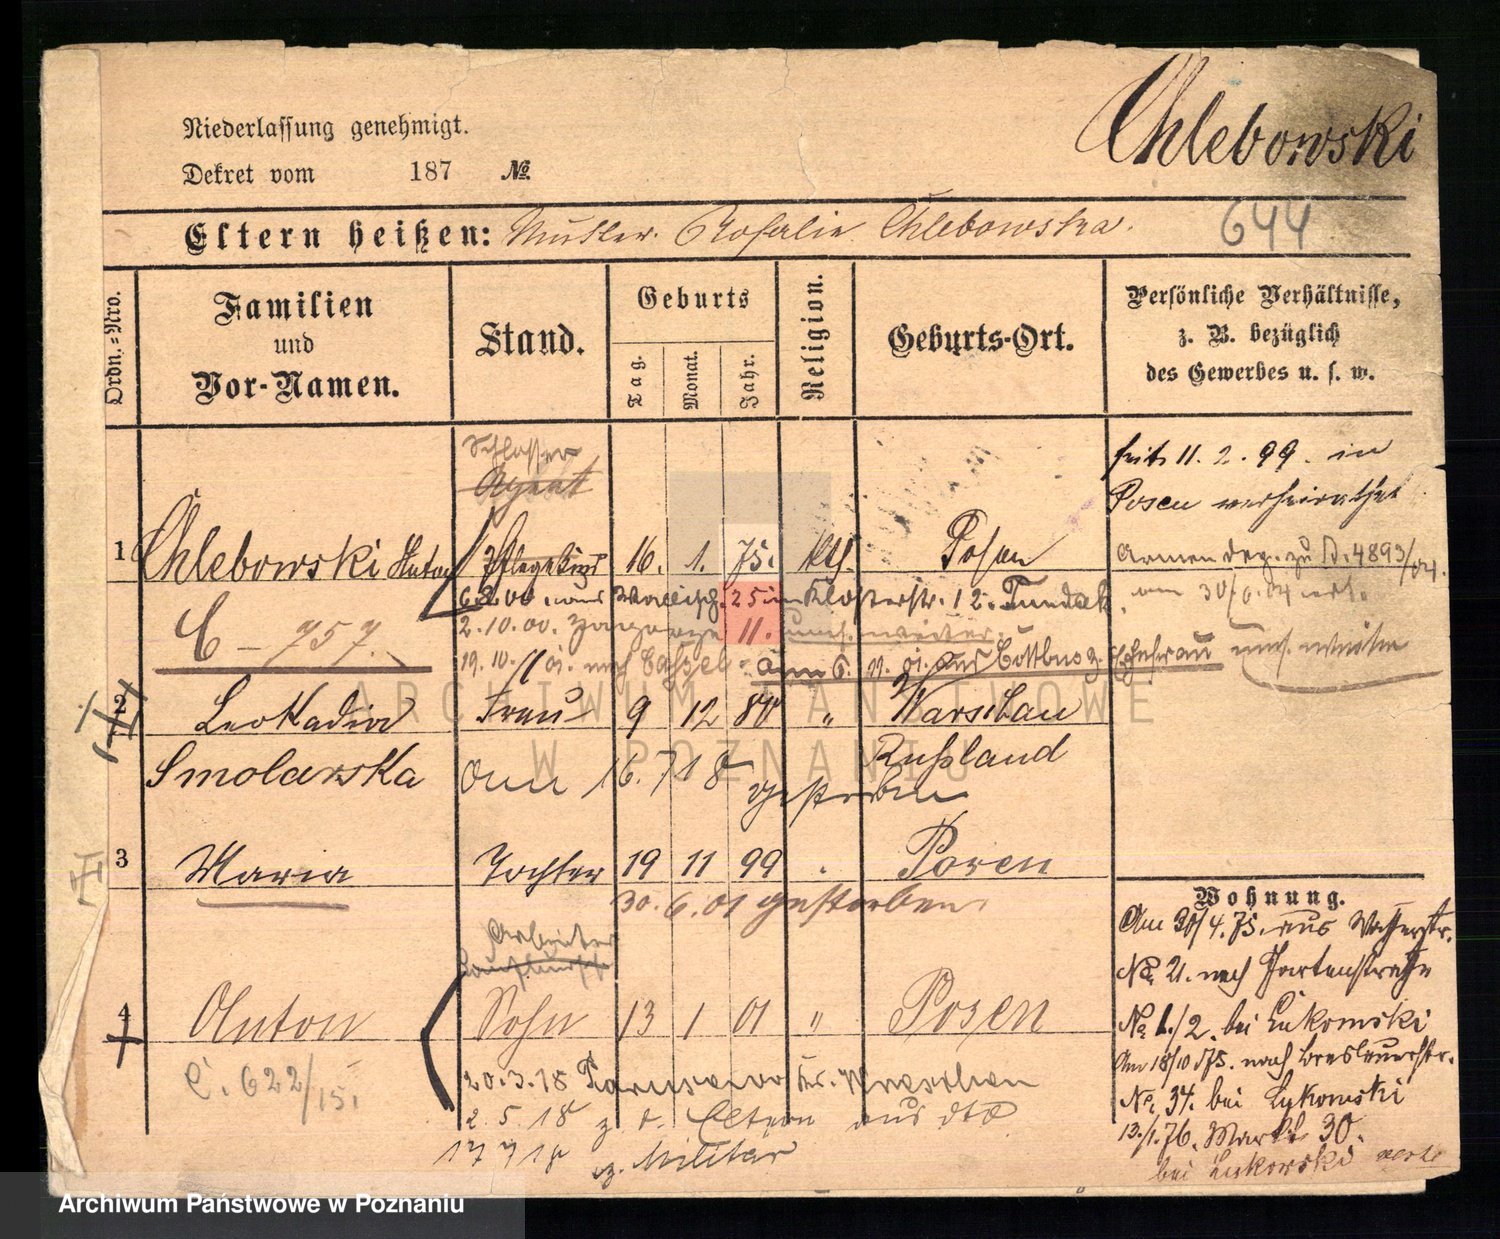 Chlebowski
Niederlassung genehmigt.
Dekret vom 187 №.
644
Eltern heißen: Mutter. Rosalie Chlebowska.
Ordn.=Nro.
Familien
und
Vor-Namen.
Stand.
Geburts
Tag.
Monat.
Jahr.
Religion.
Geburts-Ort.
Persönliche Verhältnisse,
z. B. bezüglich
des Gewerbes u. s. w.
Schlosser
Agent
seit 11. 2. 99. in
Posen verheirathet
1 Chlebowski Anton Pflegekind 16. 1. 75. kth. Posen
Armen Deg. zu D. 4893/04.
am 30/6.04 erl.
6.2.00. aus Wallisch. 25 in Klosterstr. 12.
2.10.00. Zagorze 11. umh. weiter.
C - 757.
19. 10. 01. nach Cassel. am 6. 11. 01. aus Cottbus z. Ehefrau umh. weiter
2 Leokadia Frau 9 12 80 " Warschau
Smolarska Rußland
am 16. 7 18 gestorben
3 Maria Tochter 19 11 99 . Posen
30. 6. 01 gestorben.
Arbeiter
Laufbursche
4 Anton Sohn 13 1 01 " Posen
C. 622/15.
20.3.18 Kr. Wreschen
2. 5. 18 z. d. Eltern aus dto
17 7 18 z. Militär
Wohnung.
Am 30/4. 75. aus Wasserstr.
No. 21. nach Gartenstraße
No. 1./2. bei Lukomski
Am 18/10 75. nach Breslauerstr.
No. 34. bei Lykomski
13./1. 76. Markt 30.
bei Lukowski
ARCHIWUM PAŃSTWOWE
W POZNANIU
Archiwum Państwowe w Poznaniu